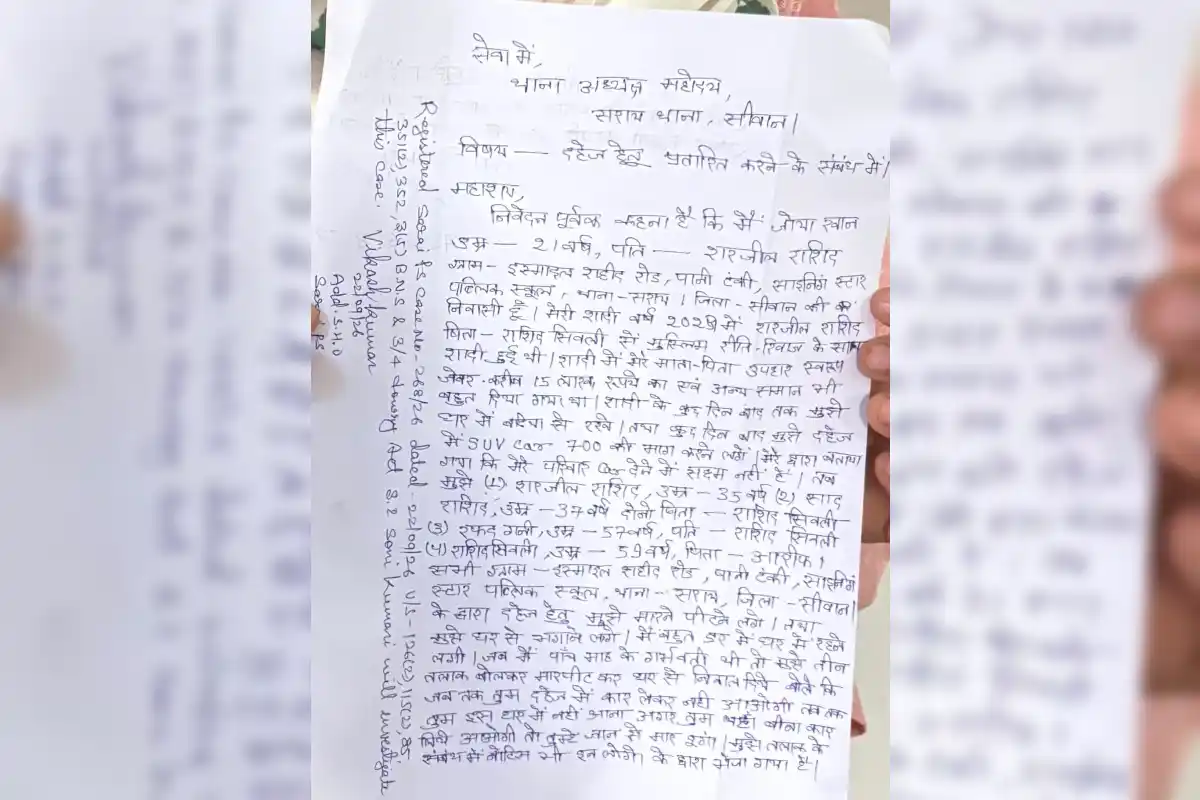 सेवा में,
थाना अध्यक्ष महोदय,
सराय थाना, सीवान।
विषय — दहेज हेतु प्रतारित करने के संबंध में।
महाशय,
निवेदन पूर्वक कहना है कि मैं जोया खान
उम्र — 21 वर्ष, पति — शारजील राशिद
ग्राम - इस्माइल शहीद रोड, पानी टंकी, साइनिंग स्टार
पब्लिक स्कूल, थाना - सराय। जिला - सीवान की
निवासी हूँ। मेरी शादी वर्ष में शारजील राशिद
पिता - राशिद सिवली से मुस्लिम रीति-रिवाज के साथ
शादी हुई थी। शादी में मेरे माता-पिता उपहार स्वरूप
जेवर करीब 15 लाख रुपये का एवं अन्य समान भी
बहुत दिया गया था। शादी के कुछ दिन बाद तक मुझे
घर में बढ़िया से रखे। तथा कुछ दिन बाद मुझे दहेज
में SUV car 700 की मांग करने लगे। मेरे द्वारा बताया
गया कि मेरे परिवार car देने में सक्षम नहीं हैं। तब
मुझे (1) शारजील राशिद, उम्र - 35 वर्ष (2) साद
राशिद, उम्र - 37 वर्ष दोनों पिता — राशिद सिवली
(3) गनी, उम्र - 57 वर्ष, पति - राशिद सिवली
(4) राशिद सिवली, उम्र - 59 वर्ष, पिता - आरीफ।
सभी ग्राम - इस्माइल शहीद रोड, पानी टंकी, साइनिंग
स्टार पब्लिक स्कूल, थाना - सराय, जिला - सीवान।
के द्वारा दहेज हेतु मुझे मारने पीटने लगे। तथा
मुझे घर से भगाने लगे। मैं बहुत डर में घर में रहने
लगी। जब मैं पाँच माह के गर्भवती थी तो मुझे तीन
तलाक बोलकर मारपीट कर घर से निकाल दिये बोले कि
जब तक तुम दहेज में कार लेकर नहीं आओगी तब तक
तुम इस घर में नहीं आना अगर तुम यहाँ बीना कार
लिये आओगी तो तुम्हें जान से मार दूंगा। मुझे तलाक के
संबंध में नोटिस भी इन लोगों के द्वारा भेजा गया है।
Registered Sarai P.S Case No - 268/26 dated - 22/09/26 U/S - 126(2), 115(2), 85
351(2), 352, 3(5) B.N.S & 3/4 dowry Act S.I Soni Kumari will investigate
this case.
Vikash Kumar
22/09/26
Add. S.H.O
Sarai P.S